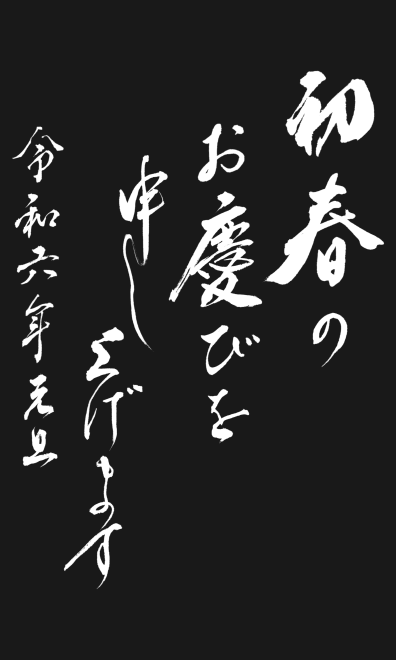 初春の
お慶びを
申し
上げます
令和六年元旦